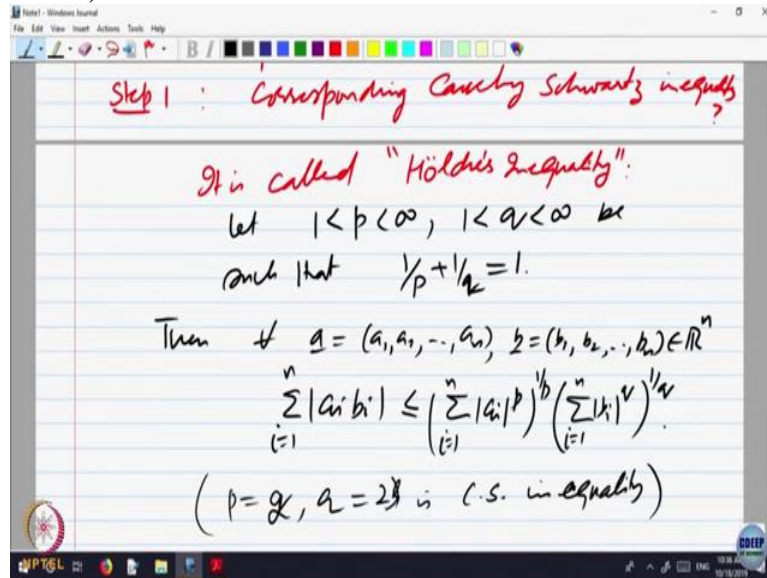 Note1 - Windows Journal
File Edit View Insert Actions Tools Help
B I
Step 1 : Corresponding Cauchy Schwartz inequality ?
It is called "Hölder's Inequality":
Let 1<p<∞, 1<q<∞ be
such that 1/p + 1/q = 1.
Then ∀ a = (a₁, a₂, .., aₙ), b = (b₁, b₂, .., bₙ) ∈ ℝⁿ
∑ᵢ₌₁ⁿ |aᵢ bᵢ| ≤ (∑ᵢ₌₁ⁿ |aᵢ|^p)^{1/p} (∑ᵢ₌₁ⁿ |bᵢ|^q)^{1/q}.
(p = 2, q = 2 is C.S. inequality)
CDEEP
NPTEL
ENG
10/18/2019